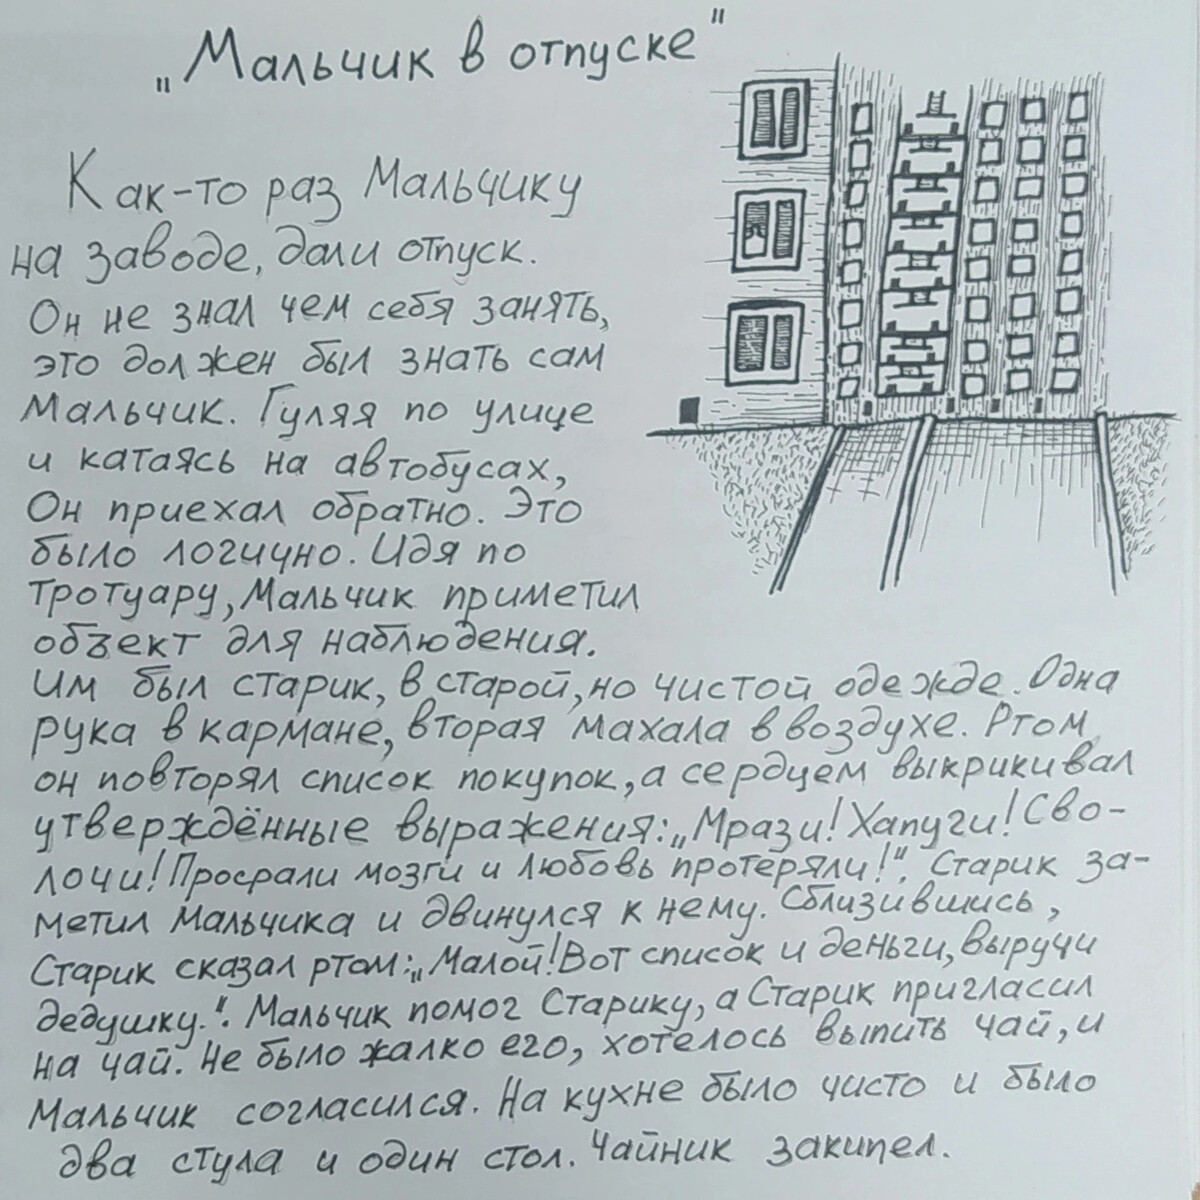 „Мальчик в отпуске"
Как-то раз Мальчику
на заводе, дали отпуск.
Он не знал чем себя занять,
это должен был знать сам
Мальчик. Гуляя по улице
и катаясь на автобусах,
Он приехал обратно. Это
было логично. Идя по
тротуару, Мальчик приметил
объект для наблюдения.
Им был старик, в старой, но чистой одежде. Одна
рука в кармане, вторая махала в воздухе. Ртом
он повторял список покупок, а сердцем выкрикивал
утверждённые выражения: „Мрази! Хапуги! Сво-
лочи! Просрали мозги и любовь протеряли!". Старик за-
метил Мальчика и двинулся к нему. Сблизившись,
Старик сказал ртом: „Малой! Вот список и деньги, выручи
дедушку.". Мальчик помог Старику, а Старик пригласил
на чай. Не было жалко его, хотелось выпить чай, и
Мальчик согласился. На кухне было чисто и было
два стула и один стол. Чайник закипел.